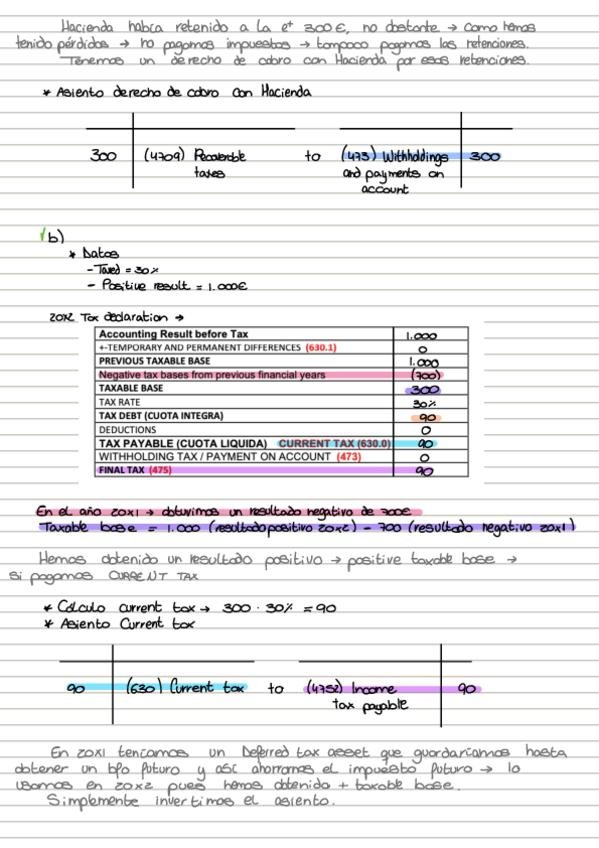 Hacienda había retenido a la e+ 300€, no obstante → como hemos
tenido pérdidas → no pagamos impuestos → tampoco pagamos las retenciones.
Tenemos un derecho de cobro con Hacienda por esas retenciones.
* Asiento derecho de cobro con Hacienda
300 (4709) Recoverable to (473) Withholdings 300
taxes and payments on
account
√b)
* Datos
- Taxed = 30%
- Positive result = 1.000€
20X2 Tax declaration →
Accounting Result before Tax 1.000
+-TEMPORARY AND PERMANENT DIFFERENCES (630.1) 0
PREVIOUS TAXABLE BASE 1.000
Negative tax bases from previous financial years (700)
TAXABLE BASE 300
TAX RATE 30%
TAX DEBT (CUOTA INTEGRA) 90
DEDUCTIONS 0
TAX PAYABLE (CUOTA LIQUIDA) CURRENT TAX (630.0) 90
WITHHOLDING TAX / PAYMENT ON ACCOUNT (473) 0
FINAL TAX (475) 90
En el año 20X1 → obtuvimos un resultado negativo de 700€
Taxable base = 1.000 (resultado positivo 20x2) - 700 (resultado negativo 20x1)
Hemos obtenido un resultado positivo → positive taxable base →
si pagamos CURRENT TAX
* Cálculo current tax → 300 · 30% = 90
* Asiento Current tax
90 (630) Current tax to (4752) Income 90
tax payable
En 20X1 teníamos un Deferred tax asset que guardaríamos hasta
obtener un bfo futuro y así ahorrarnos el impuesto futuro → lo
usamos en 20X2 pues hemos obtenido + taxable base.
Simplemente invertimos el asiento.